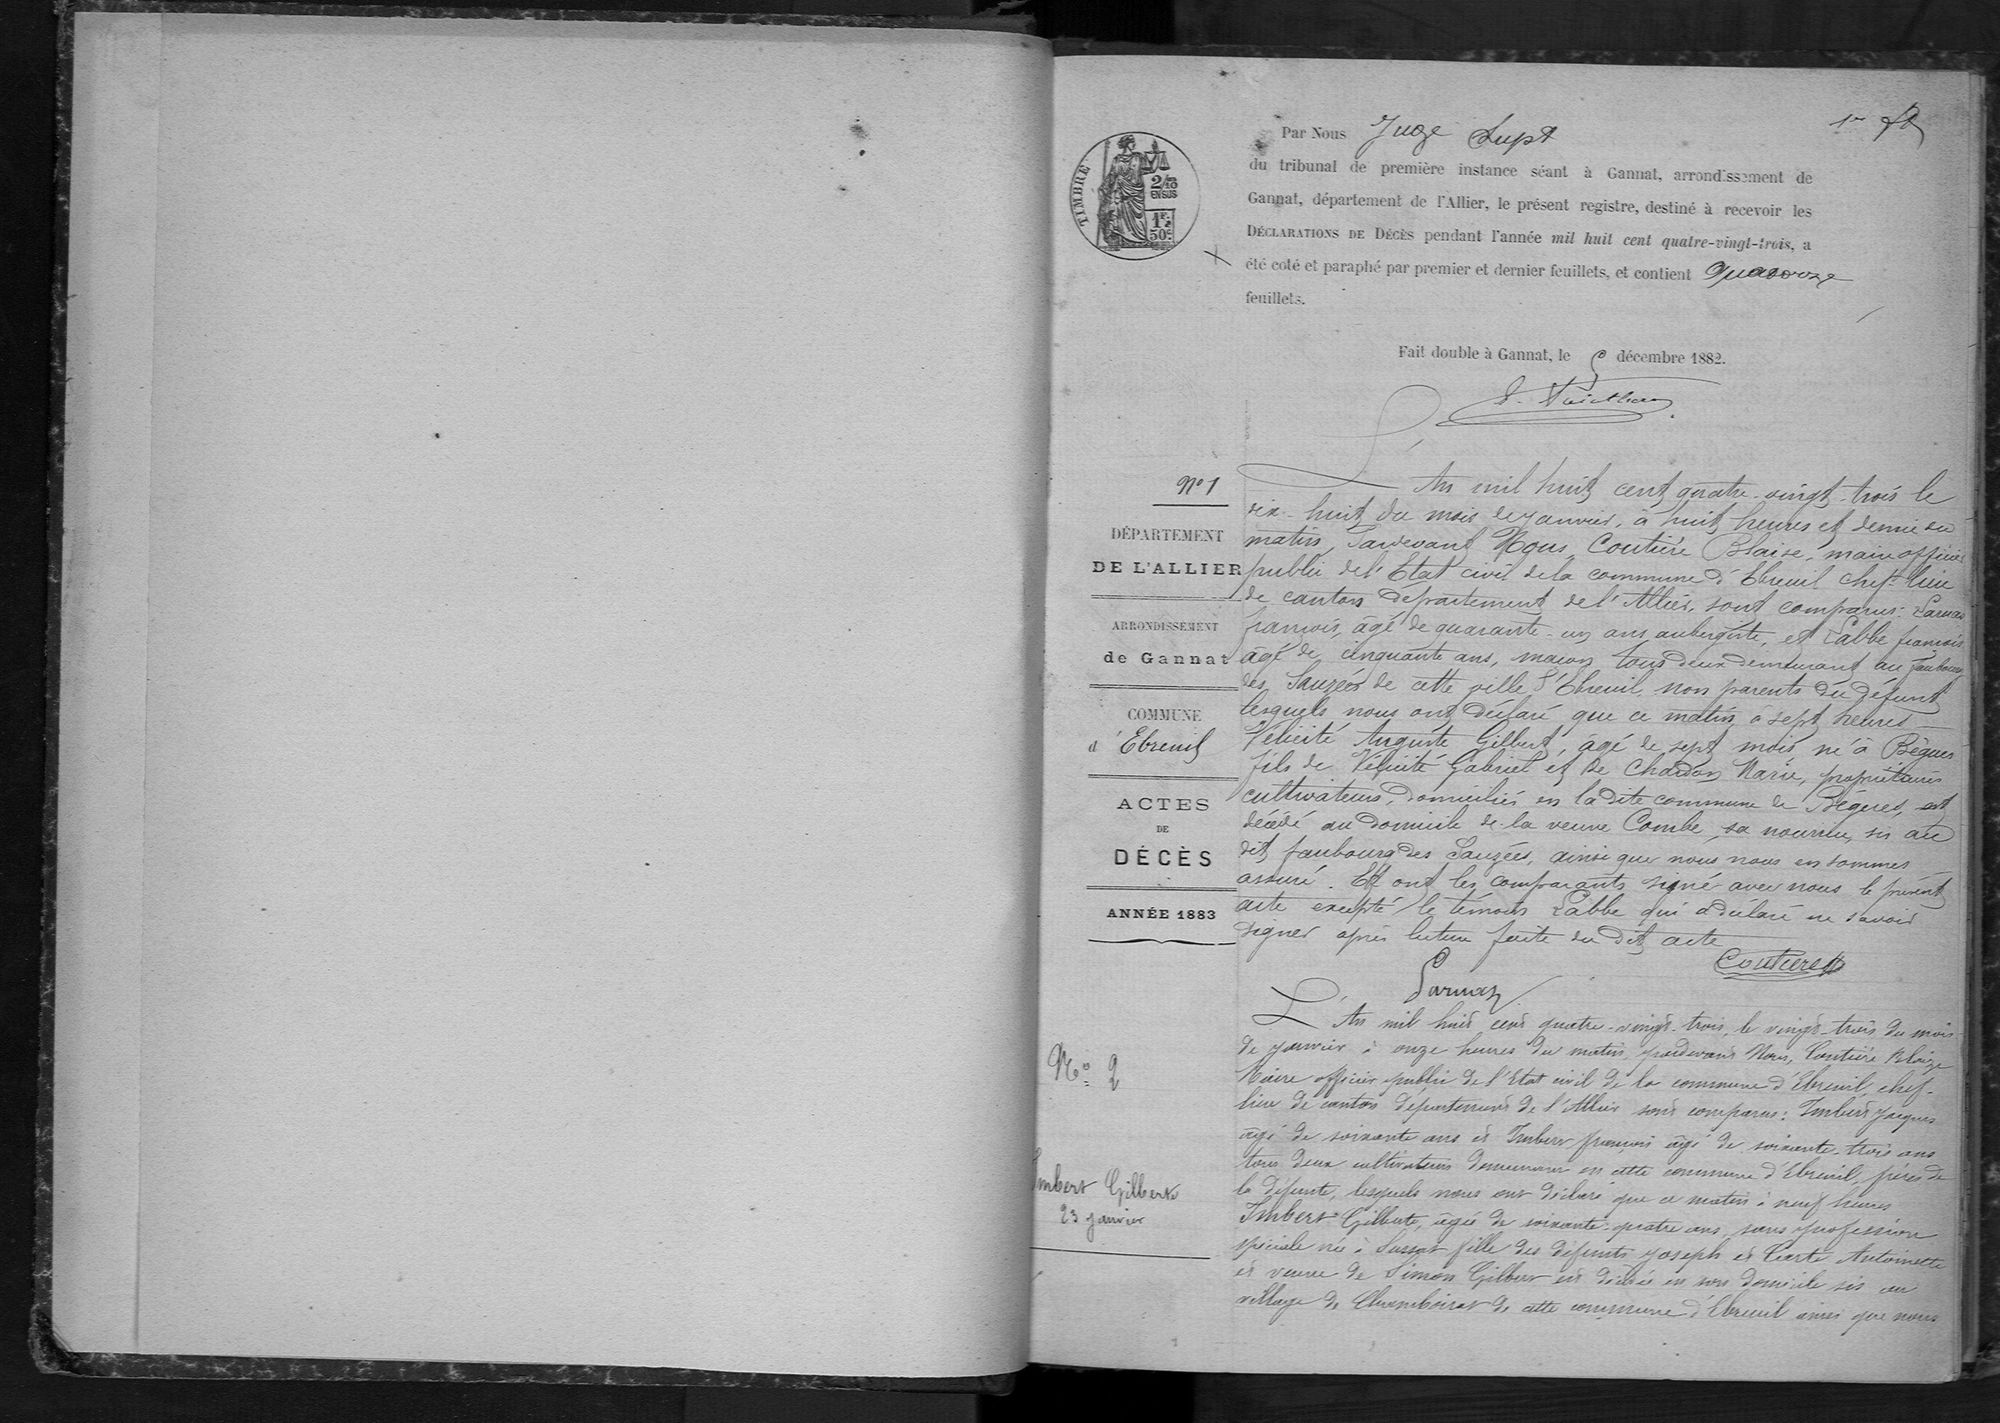 1er
TIMBRE
2/10
EN SUS
1F.
50c
Par Nous Juge Supt
du tribunal de première instance séant à Gannat, arrondissement de
Gannat, département de l'Allier, le présent registre, destiné à recevoir les
DÉCLARATIONS DE DÉCÈS pendant l'année mil huit cent quatre-vingt-trois, a
été coté et paraphé par premier et dernier feuillets, et contient Quatorze
feuillets.
Fait double à Gannat, le 5 décembre 1882.
No 1
DÉPARTEMENT
DE L'ALLIER
ARRONDISSEMENT
de Gannat
COMMUNE
d'Ebreuil
ACTES
DE
DÉCÈS
ANNÉE 1883
L'An mil huit cent quatre-vingt-trois le
dix-huit du mois de janvier, à huit heures et demie du
matin, Pardevant Nous Coutière Blaise, maire officier
public de l'Etat civil de la commune d'Ebreuil chef-lieu
de canton département de l'Allier, sont comparus:
françois, âgé de quarante-un ans aubergiste, et Labbe françois
âgé de cinquante ans, maçon tous deux demeurant au faubourg
des Sauzées de cette ville d'Ebreuil non parents du défunt
lesquels nous ont déclaré que ce matin à sept heures
Félicité Auguste Gilbert, âgé de sept mois, né à Bègues
fils de Félicité Gabriel et de Chardon Marie, propriétaires
cultivateurs, domiciliés en la dite commune de Bègues, est
décédé au domicile de la veuve Combe, sa nourrice, sis au
dit faubourg des Sauzées, ainsi que nous nous en sommes
assuré. Et ont les comparants signé avec nous le présent
acte excepté le témoin Labbe qui a déclaré ne savoir
signer après lecture faite du dit acte
Coutière
No 2
Imbert Gilberte
23 janvier
L'An mil huit cent quatre-vingt-trois, le vingt-trois du mois
de janvier à onze heures du matin, pardevant Nous, Coutière Blaize
Maire officier public de l'Etat civil de la commune d'Ebreuil, chef-
lieu de canton département de l'Allier sont comparus: Imbert Jacques
âgé de soixante ans et Imbert françois âgé de soixante-trois ans
tous deux cultivateurs demeurant en cette commune d'Ebreuil, frères de
la défunte, lesquels nous ont déclaré que ce matin à neuf heures
Imbert Gilberte, âgée de soixante-quatre ans, sans profession
spéciale née à Sussat fille des défunts Joseph et Antoinette
et veuve de Simon Gilbert est décédée en son domicile sis au
village de Chamboirat de cette commune d'Ebreuil ainsi que nous